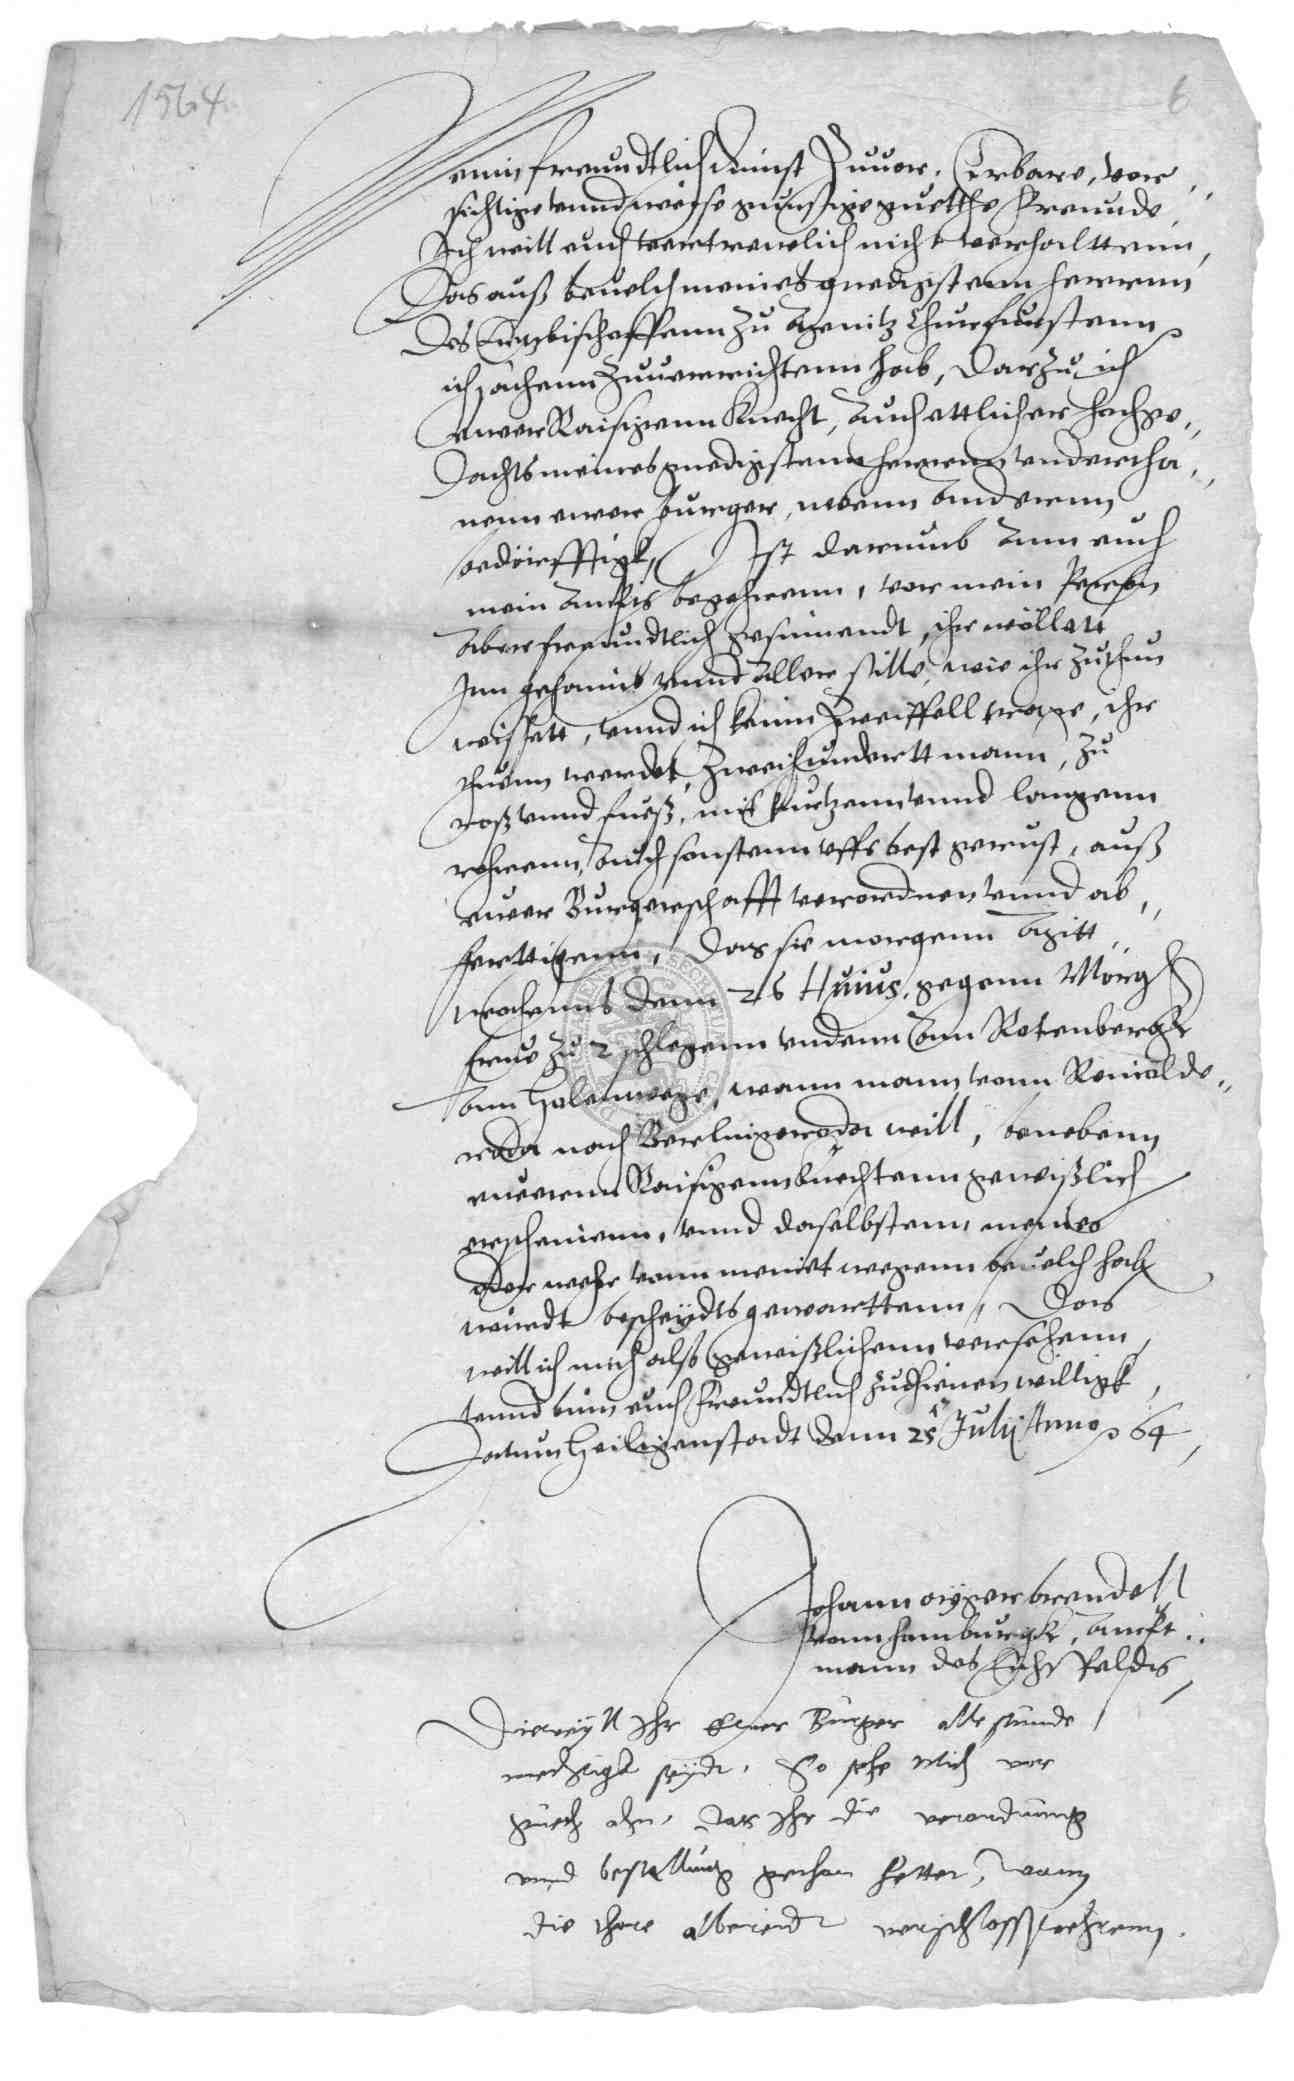 1564.
6
Mein freundtlich dinst zuuor, Erbare, vor¬
sichtige vnnd weisse gunstige guetthe freunde
Ich will euch vertrewlich nicht verhalttenn,
Das auß beuelch meines gnedigstenn herrenn
des Ertzbischoffenn zu Meintz Churfurstenn
ich sachenn zuuerrichtenn hab, Darzu ich
ewer Raisigenn Knecht, Auch ettlicher hochge¬
dachts meines gnedigstenn herrenn vndertha¬
nenn ewer burger, nebenn Anderenn
bedörfftigk, Ist darumb Ann euch
mein Ampts begehrenn, vor mein Person
Aber freundtlich gesinnendt, ihr wöllett
Inn geheimb vnnd Aller stille, wie ihr zuthun
wissett, vnnd ich keinn zweiffell trage, ihr
thuenn werdet, zweihundertt mann, zu
roß vnnd fueß, mit kurtzenn vnnd langenn
rohrenn, Auch sonstenn vffs best gerust, auß
euer Burgerschafft verordnen vnnd ab¬
fertigenn, Das sie morgenn Mitt¬
wochenns denn 26 Huius, gegenn Morg
frue zu 2 schlegenn vndenn Am Rotenbergk
Am Holenwege, wann mann vonn Reinolde¬
roda nach Berlingeroda will, benebenn
eueren Raisigenn knechtenn gewißlich
erscheinenn, vnnd daselbstenn meines
oder wehr vonn meinet wegenn beuelch hab
würdt bescheydts gewarttenn, Das
will ich mich also gewißlichenn versehenn,
vnnd binn euch freundtlich zudhienen willigk,
Datum Heiligenstadt denn 25 Julij Anno 64
Johann oiger brendell
vonn Homburgk, Ampt¬
mann des Eichsfeldts
Dieweyll Ihr Ewer Burger alle stunde
mechtigk seydt, So sehe mich vor
guth ahn, das Ihr die verordnung
vnnd bestellung gethan hetten, wann
die thore albereidt verschlossen wehrenn.